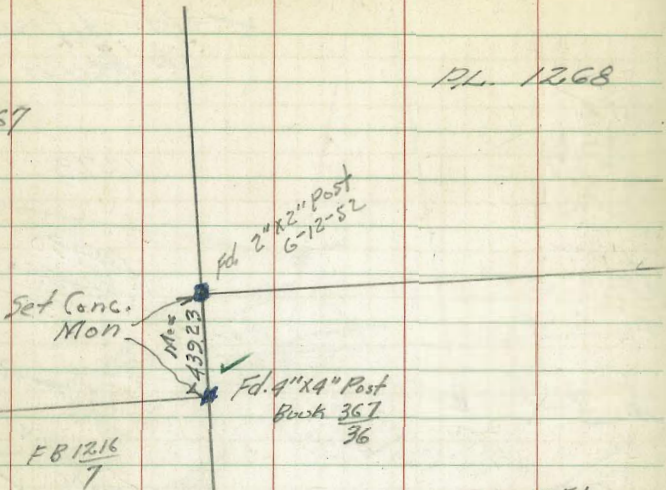 P.L. 1268
67
Fd. 2"x2" Post
6-12-52
Set Conc.
Mon
Mea
439.23
Fd. 4"x4" Post
Book 367
36
FB 1216
7